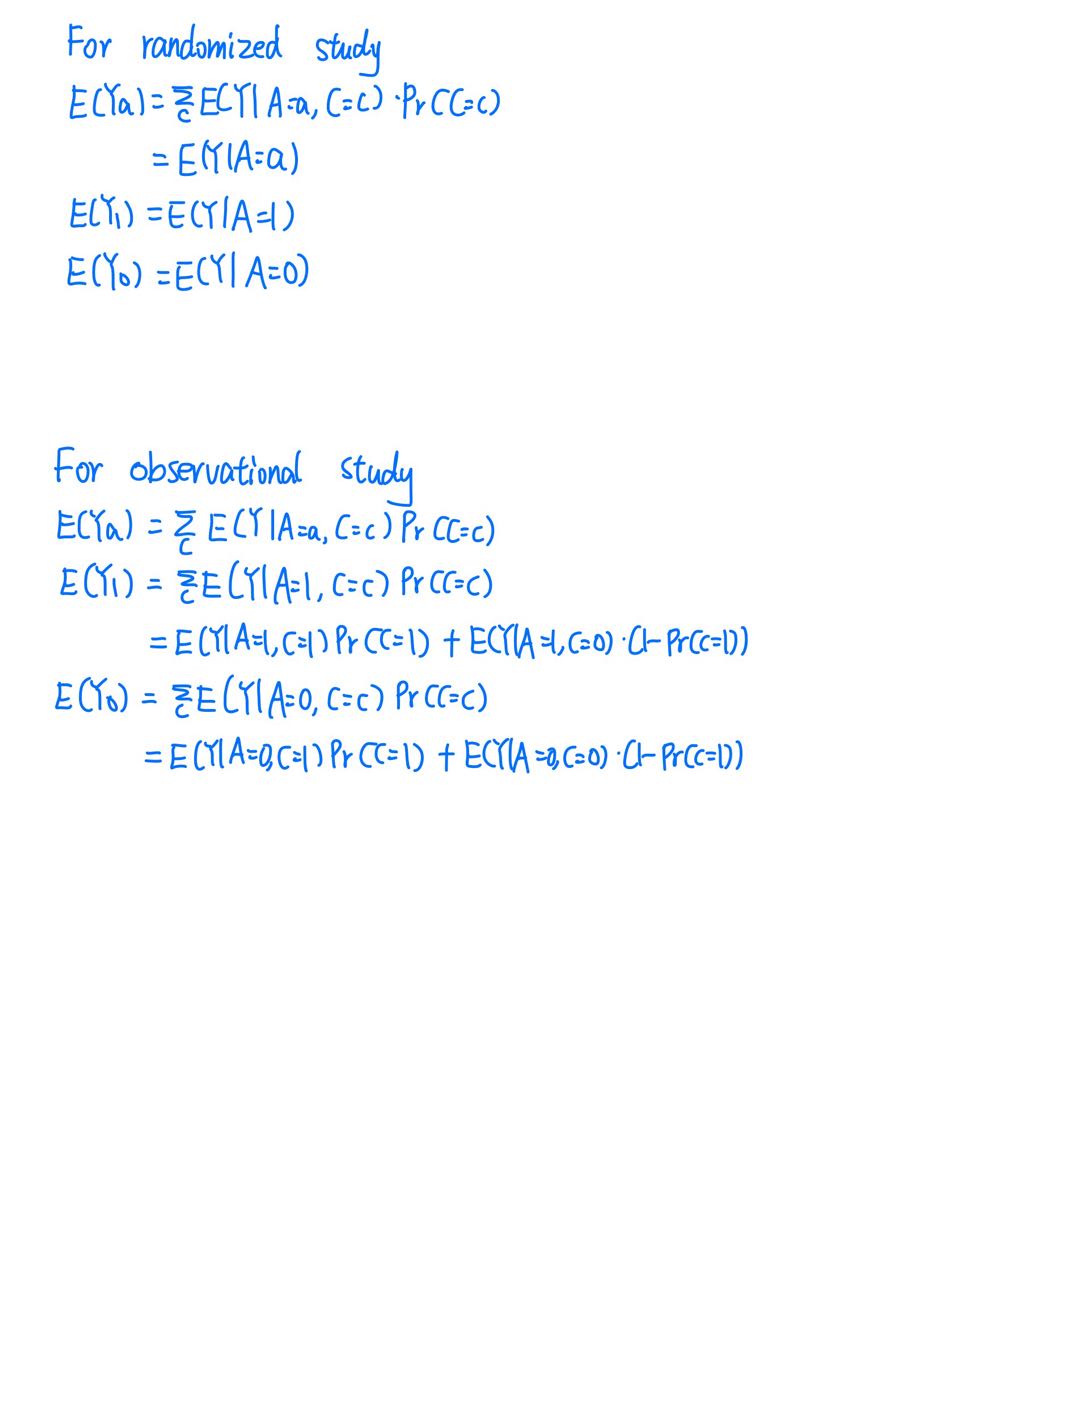 For randomized study
E(Ya) = Σc E(Y|A=a, C=c) · Pr(C=c)
= E(Y|A=a)
E(Y1) = E(Y|A=1)
E(Y0) = E(Y|A=0)
For observational study
E(Ya) = Σc E(Y|A=a, C=c) Pr(C=c)
E(Y1) = Σc E(Y|A=1, C=c) Pr(C=c)
= E(Y|A=1, C=1) Pr(C=1) + E(Y|A=1, C=0) · (1-Pr(C=1))
E(Y0) = Σc E(Y|A=0, C=c) Pr(C=c)
= E(Y|A=0, C=1) Pr(C=1) + E(Y|A=0, C=0) · (1-Pr(C=1))